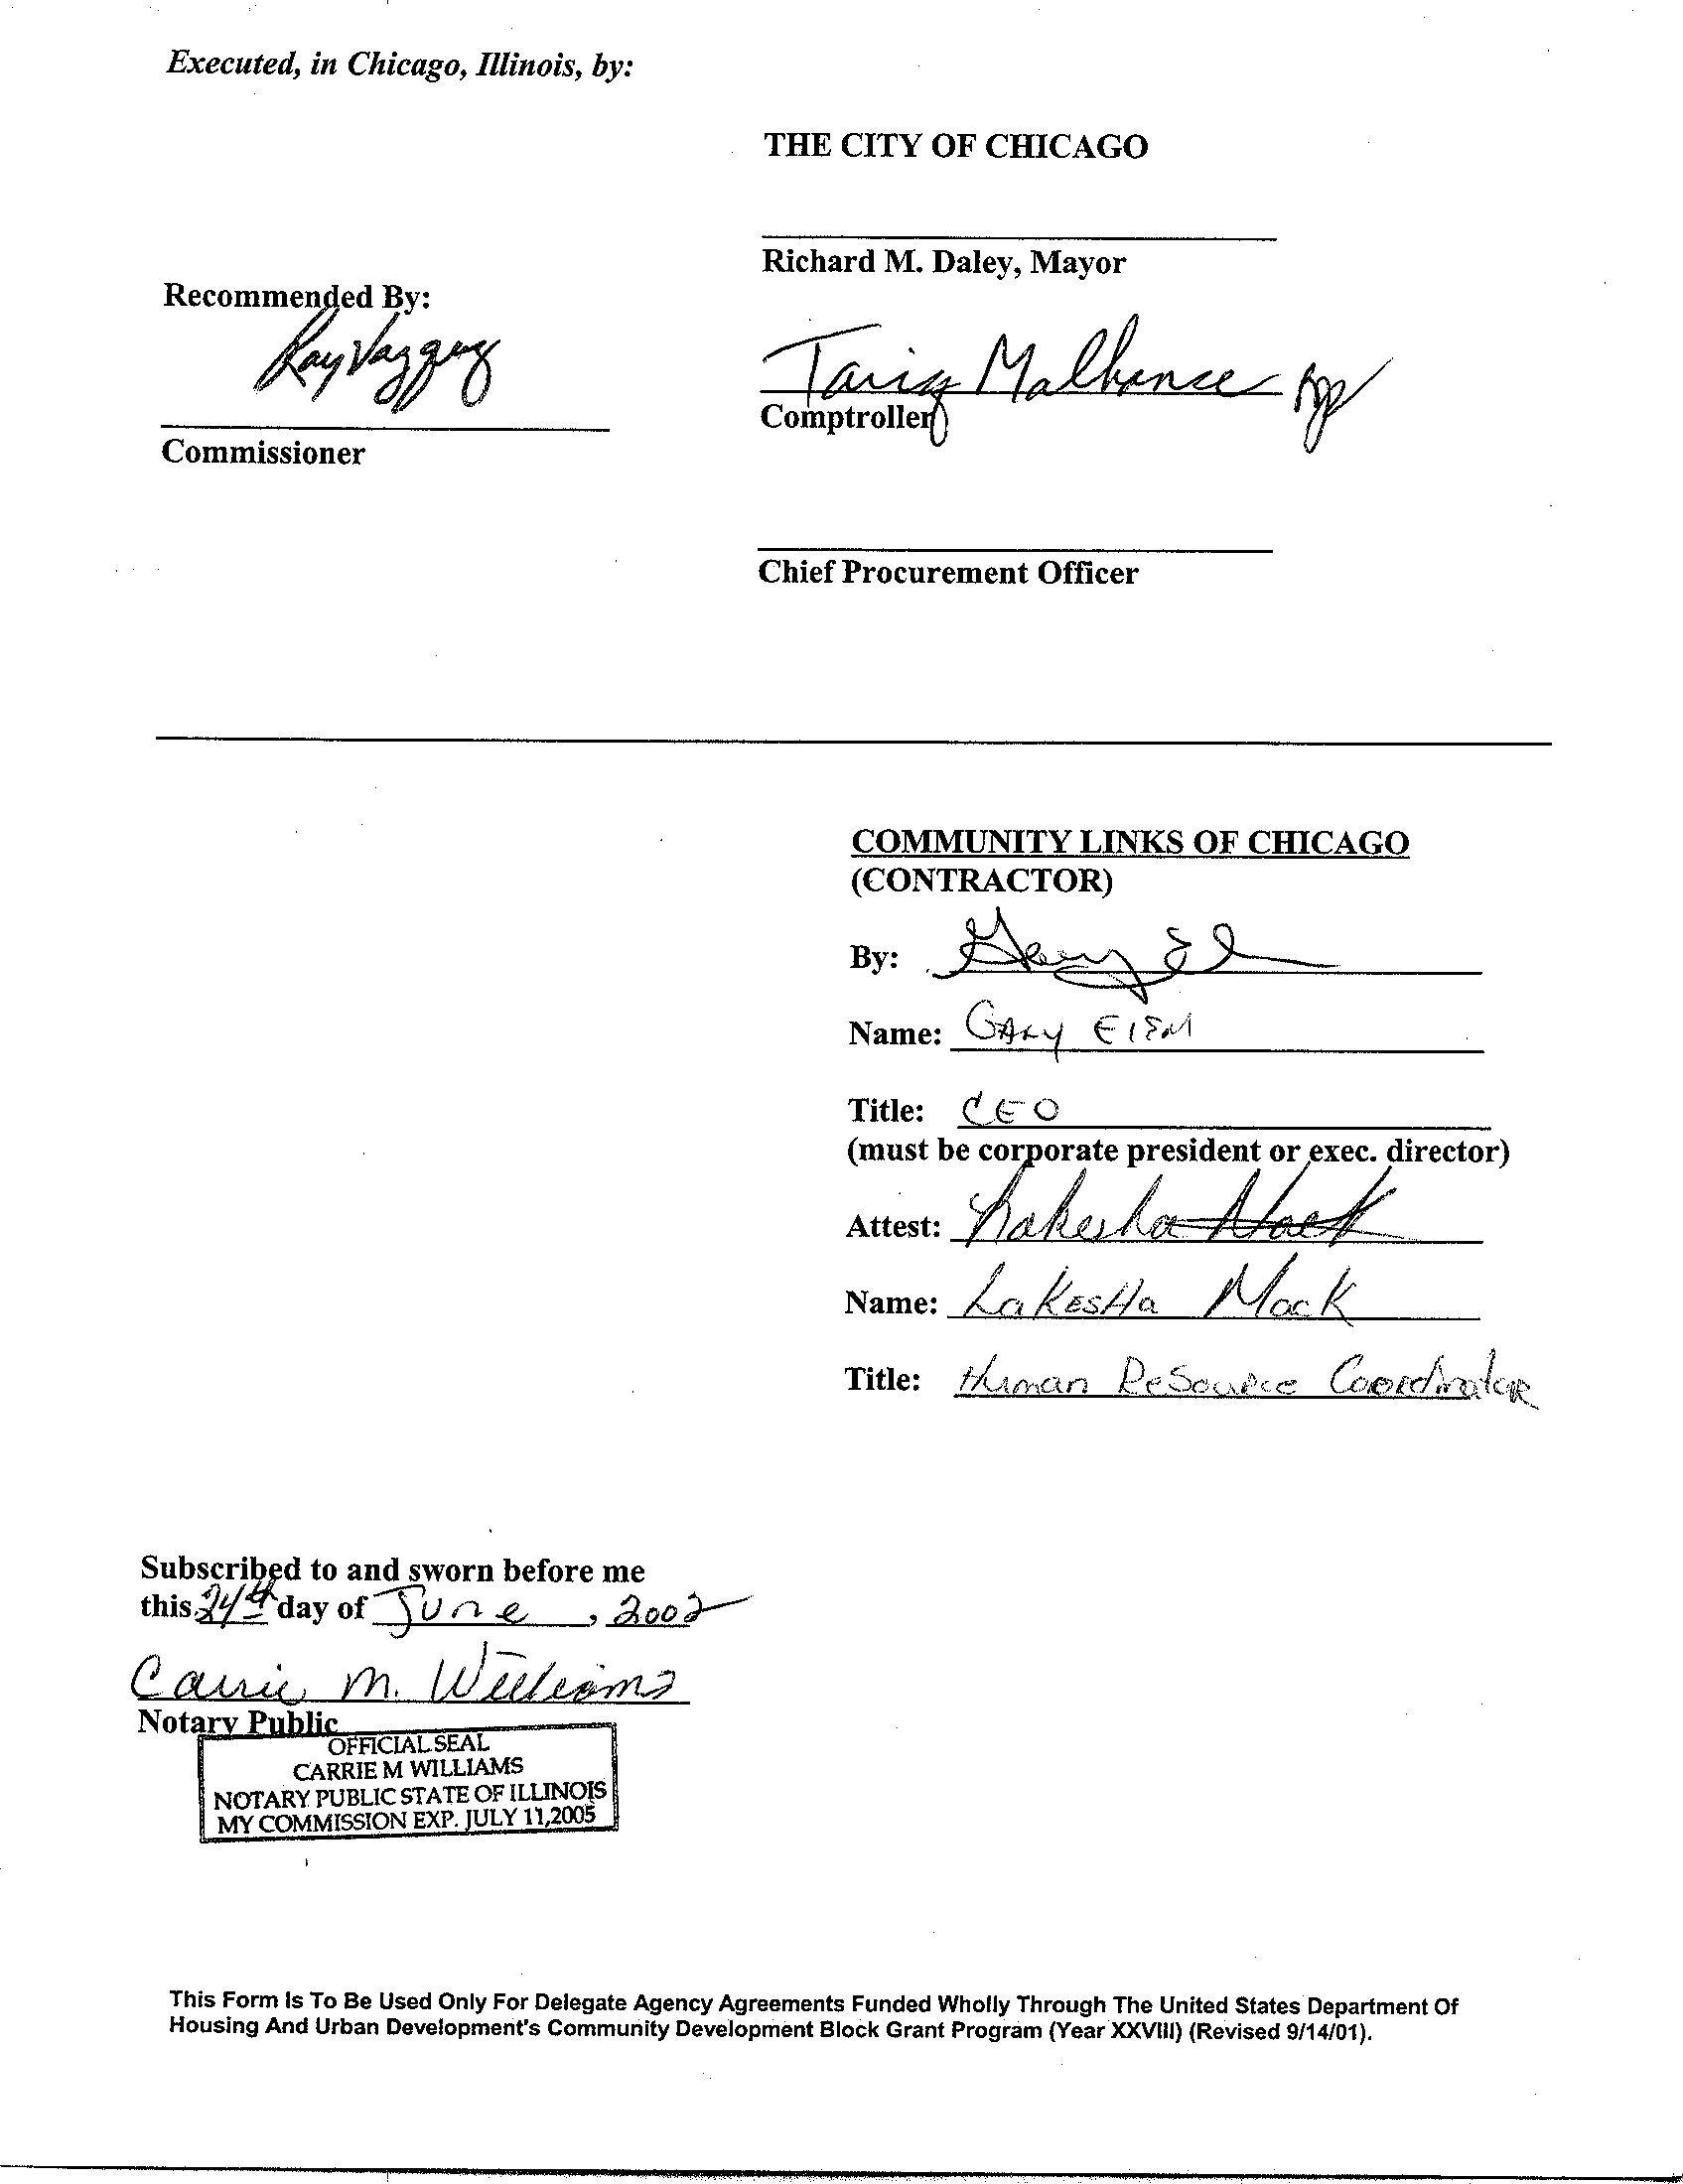 Executed, in Chicago, Illinois, by:
THE CITY OF CHICAGO
Richard M. Daley, Mayor
Recommended By:
Ray Vazquez
Tariq Malhance
Comptroller
Commissioner
Chief Procurement Officer
COMMUNITY LINKS OF CHICAGO
(CONTRACTOR)
By: Gary
Name: GARY
Title: CEO
(must be corporate president or exec. director)
Attest: Lakesha Mack
Name: LaKesHa Mack
Title: Human ReSource Coordinator
Subscribed to and sworn before me
this 24th day of June, 2002
Carrie M. Williams
Notary Public
OFFICIAL SEAL
CARRIE M WILLIAMS
NOTARY PUBLIC STATE OF ILLINOIS
MY COMMISSION EXP. JULY 11,2005
This Form Is To Be Used Only For Delegate Agency Agreements Funded Wholly Through The United States Department Of
Housing And Urban Development's Community Development Block Grant Program (Year XXVIII) (Revised 9/14/01).